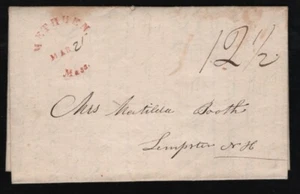 METHUEN
MAR 21
Mass.
12 1/2
Mrs Matilda Booth
Lempster N H